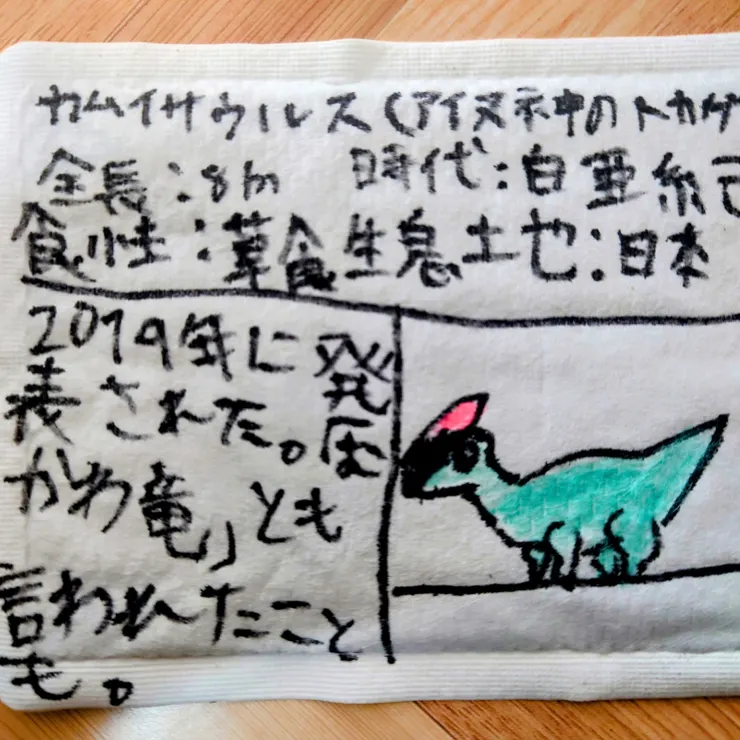 カムイサウルス(アイヌ神のトカゲ
全長:8m 時代:白亜紀
食性:草食 生息地:日本
2019年に発
表された。「む
かわ竜」とも
言われたこと
も。